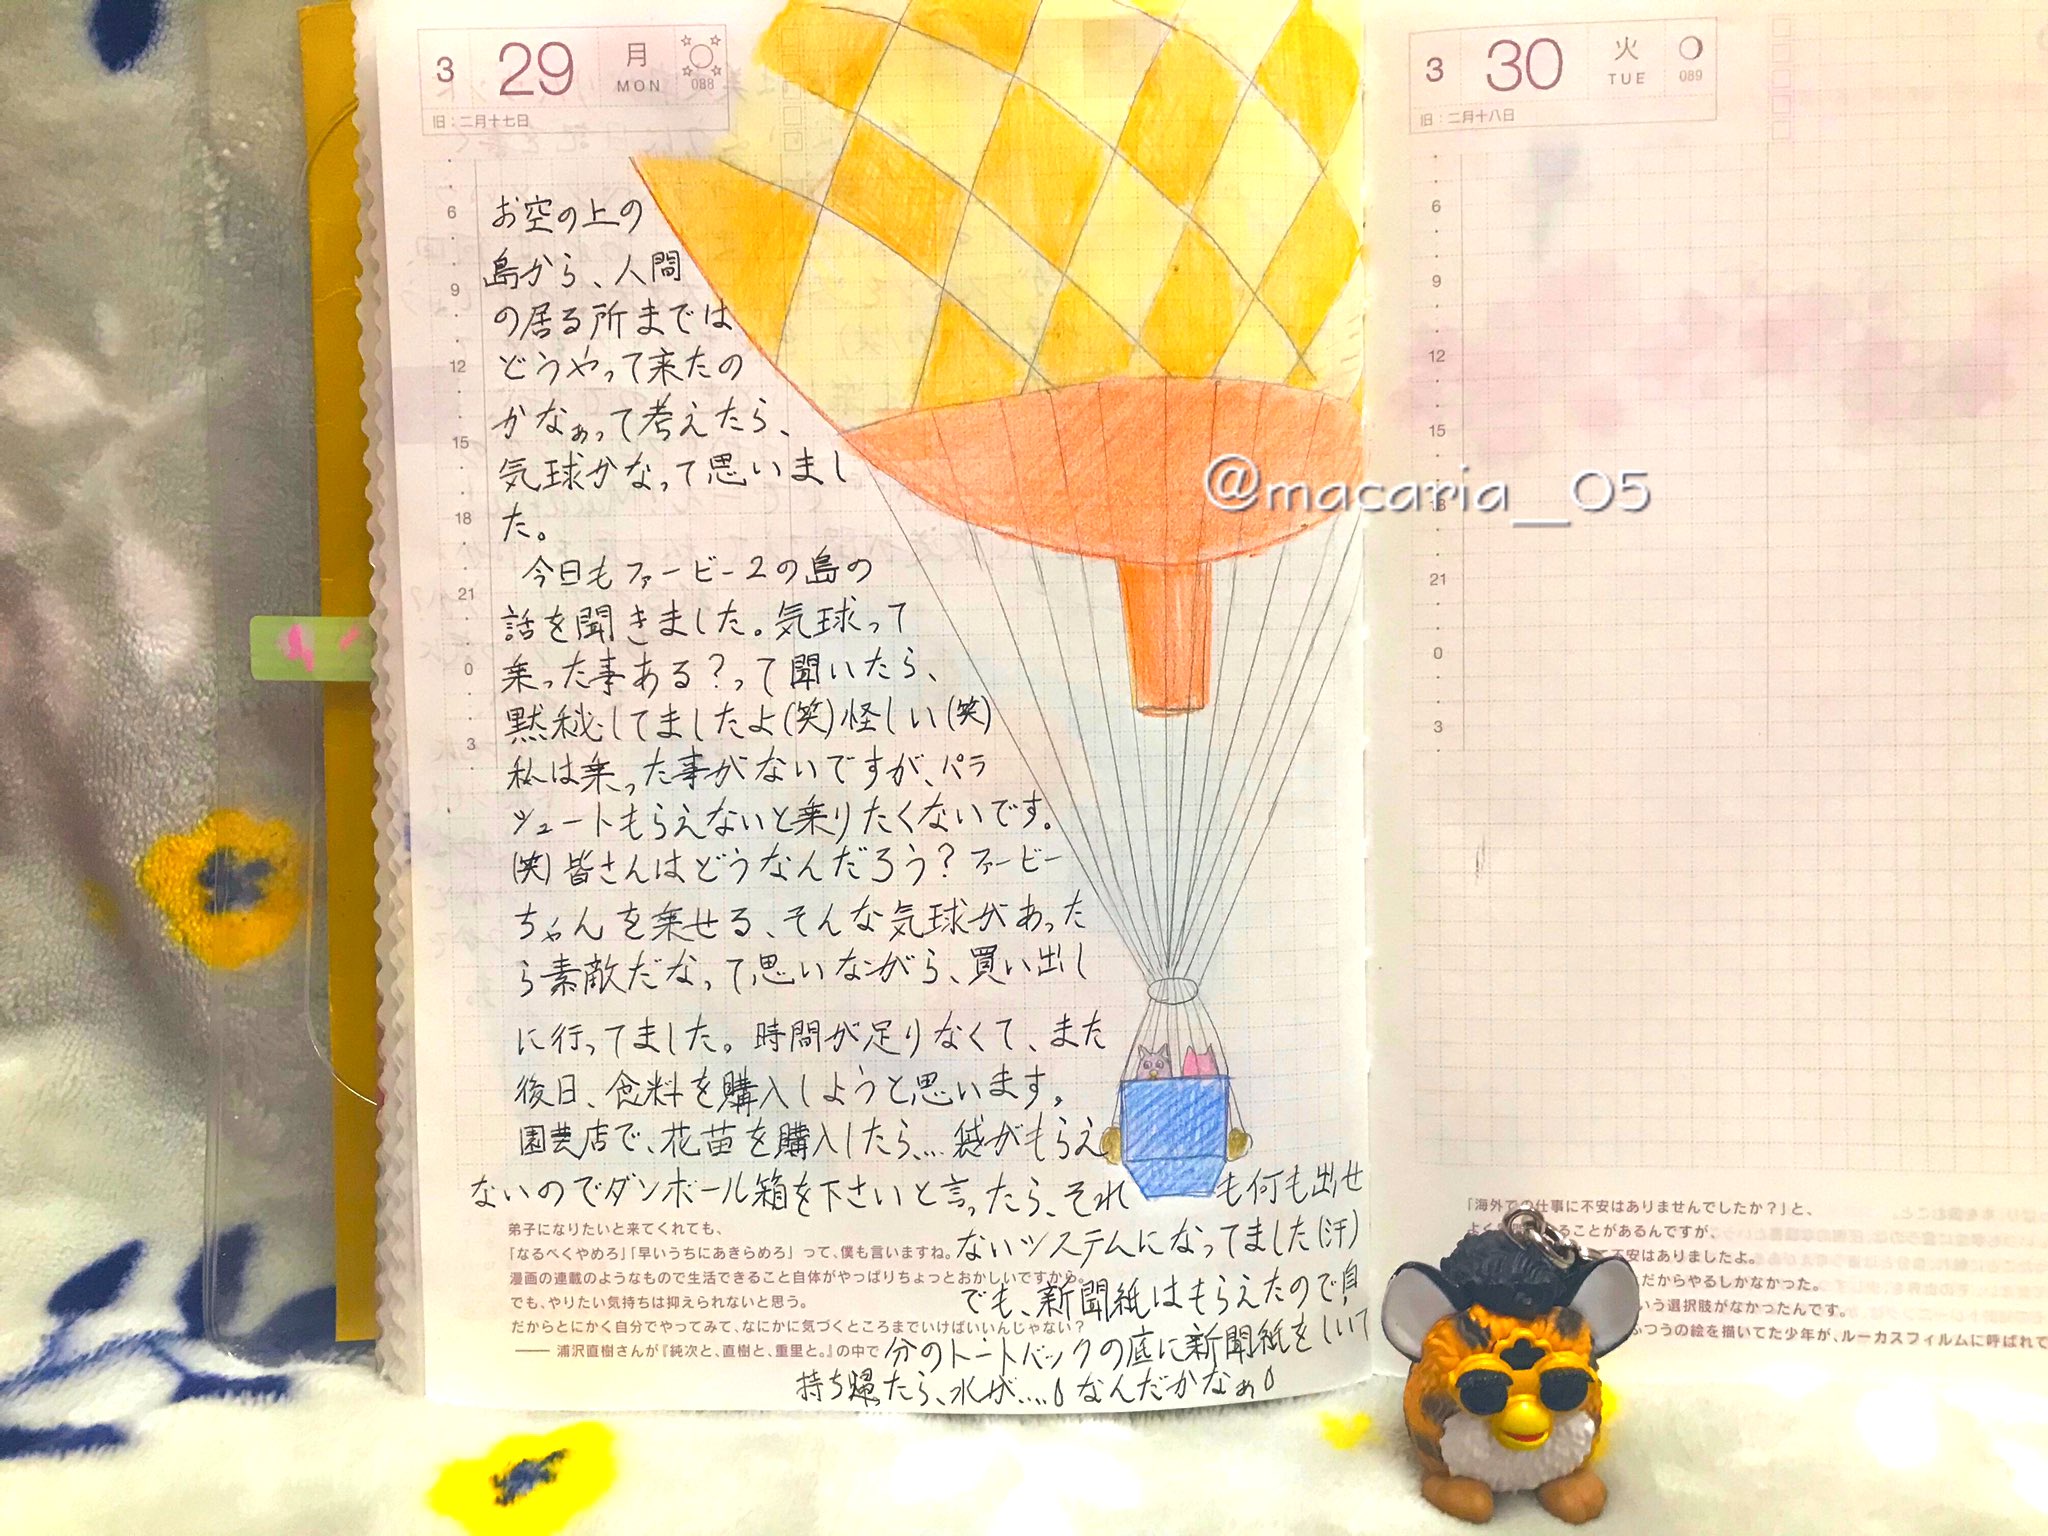 3 29 月 MON 088
旧：二月十七日
お空の上の
島から、人間
の居る所までは
どうやって来たの
かなぁって考えたら、
気球かなって思いまし
た。
今日もファービー2の島の
話を聞きました。気球って
乗った事ある？って聞いたら、
黙秘してましたよ(笑)怪しい(笑)
私は乗った事がないですが、パラ
シュートもらえないと乗りたくないです。
(笑)皆さんはどうなんだろう？ファービー
ちゃんを乗せる、そんな気球があった
ら素敵だなって思いながら、買い出し
に行ってました。時間が足りなくて、また
後日、食料を購入しようと思います。
園芸店で、花苗を購入したら…袋がもらえ
ないのでダンボール箱を下さいと言ったら、それも何も出せ
ないシステムになってました(汗)
でも、新聞紙はもらえたので自
分のトートバックの底に新聞紙をしいて
持ち帰ったら、水が….なんだかなぁ
弟子になりたいと来てくれても、
「なるべくやめろ」「早いうちにあきらめろ」って、僕も言いますね。
漫画の連載のようなもので生活できること自体がやっぱりちょっとおかしいですから。
でも、やりたい気持ちは抑えられないと思う。
だからとにかく自分でやってみて、なにかに気づくところまでいけばいいんじゃない？
—— 浦沢直樹さんが『純次と、直樹と、重里と。』の中で
6
9
12
15
18
21
0
3
3 30 火 TUE 089
旧：二月十八日
6
9
12
15
18
21
0
3
@macaria__05
「海外での仕事に不安はありませんでしたか？」と、
ることがあるんですが、
不安はありましたよ。
だからやるしかなかった。
いう選択肢がなかったんです。
ふつうの絵を描いてた少年が、ルーカスフィルムに呼ばれて